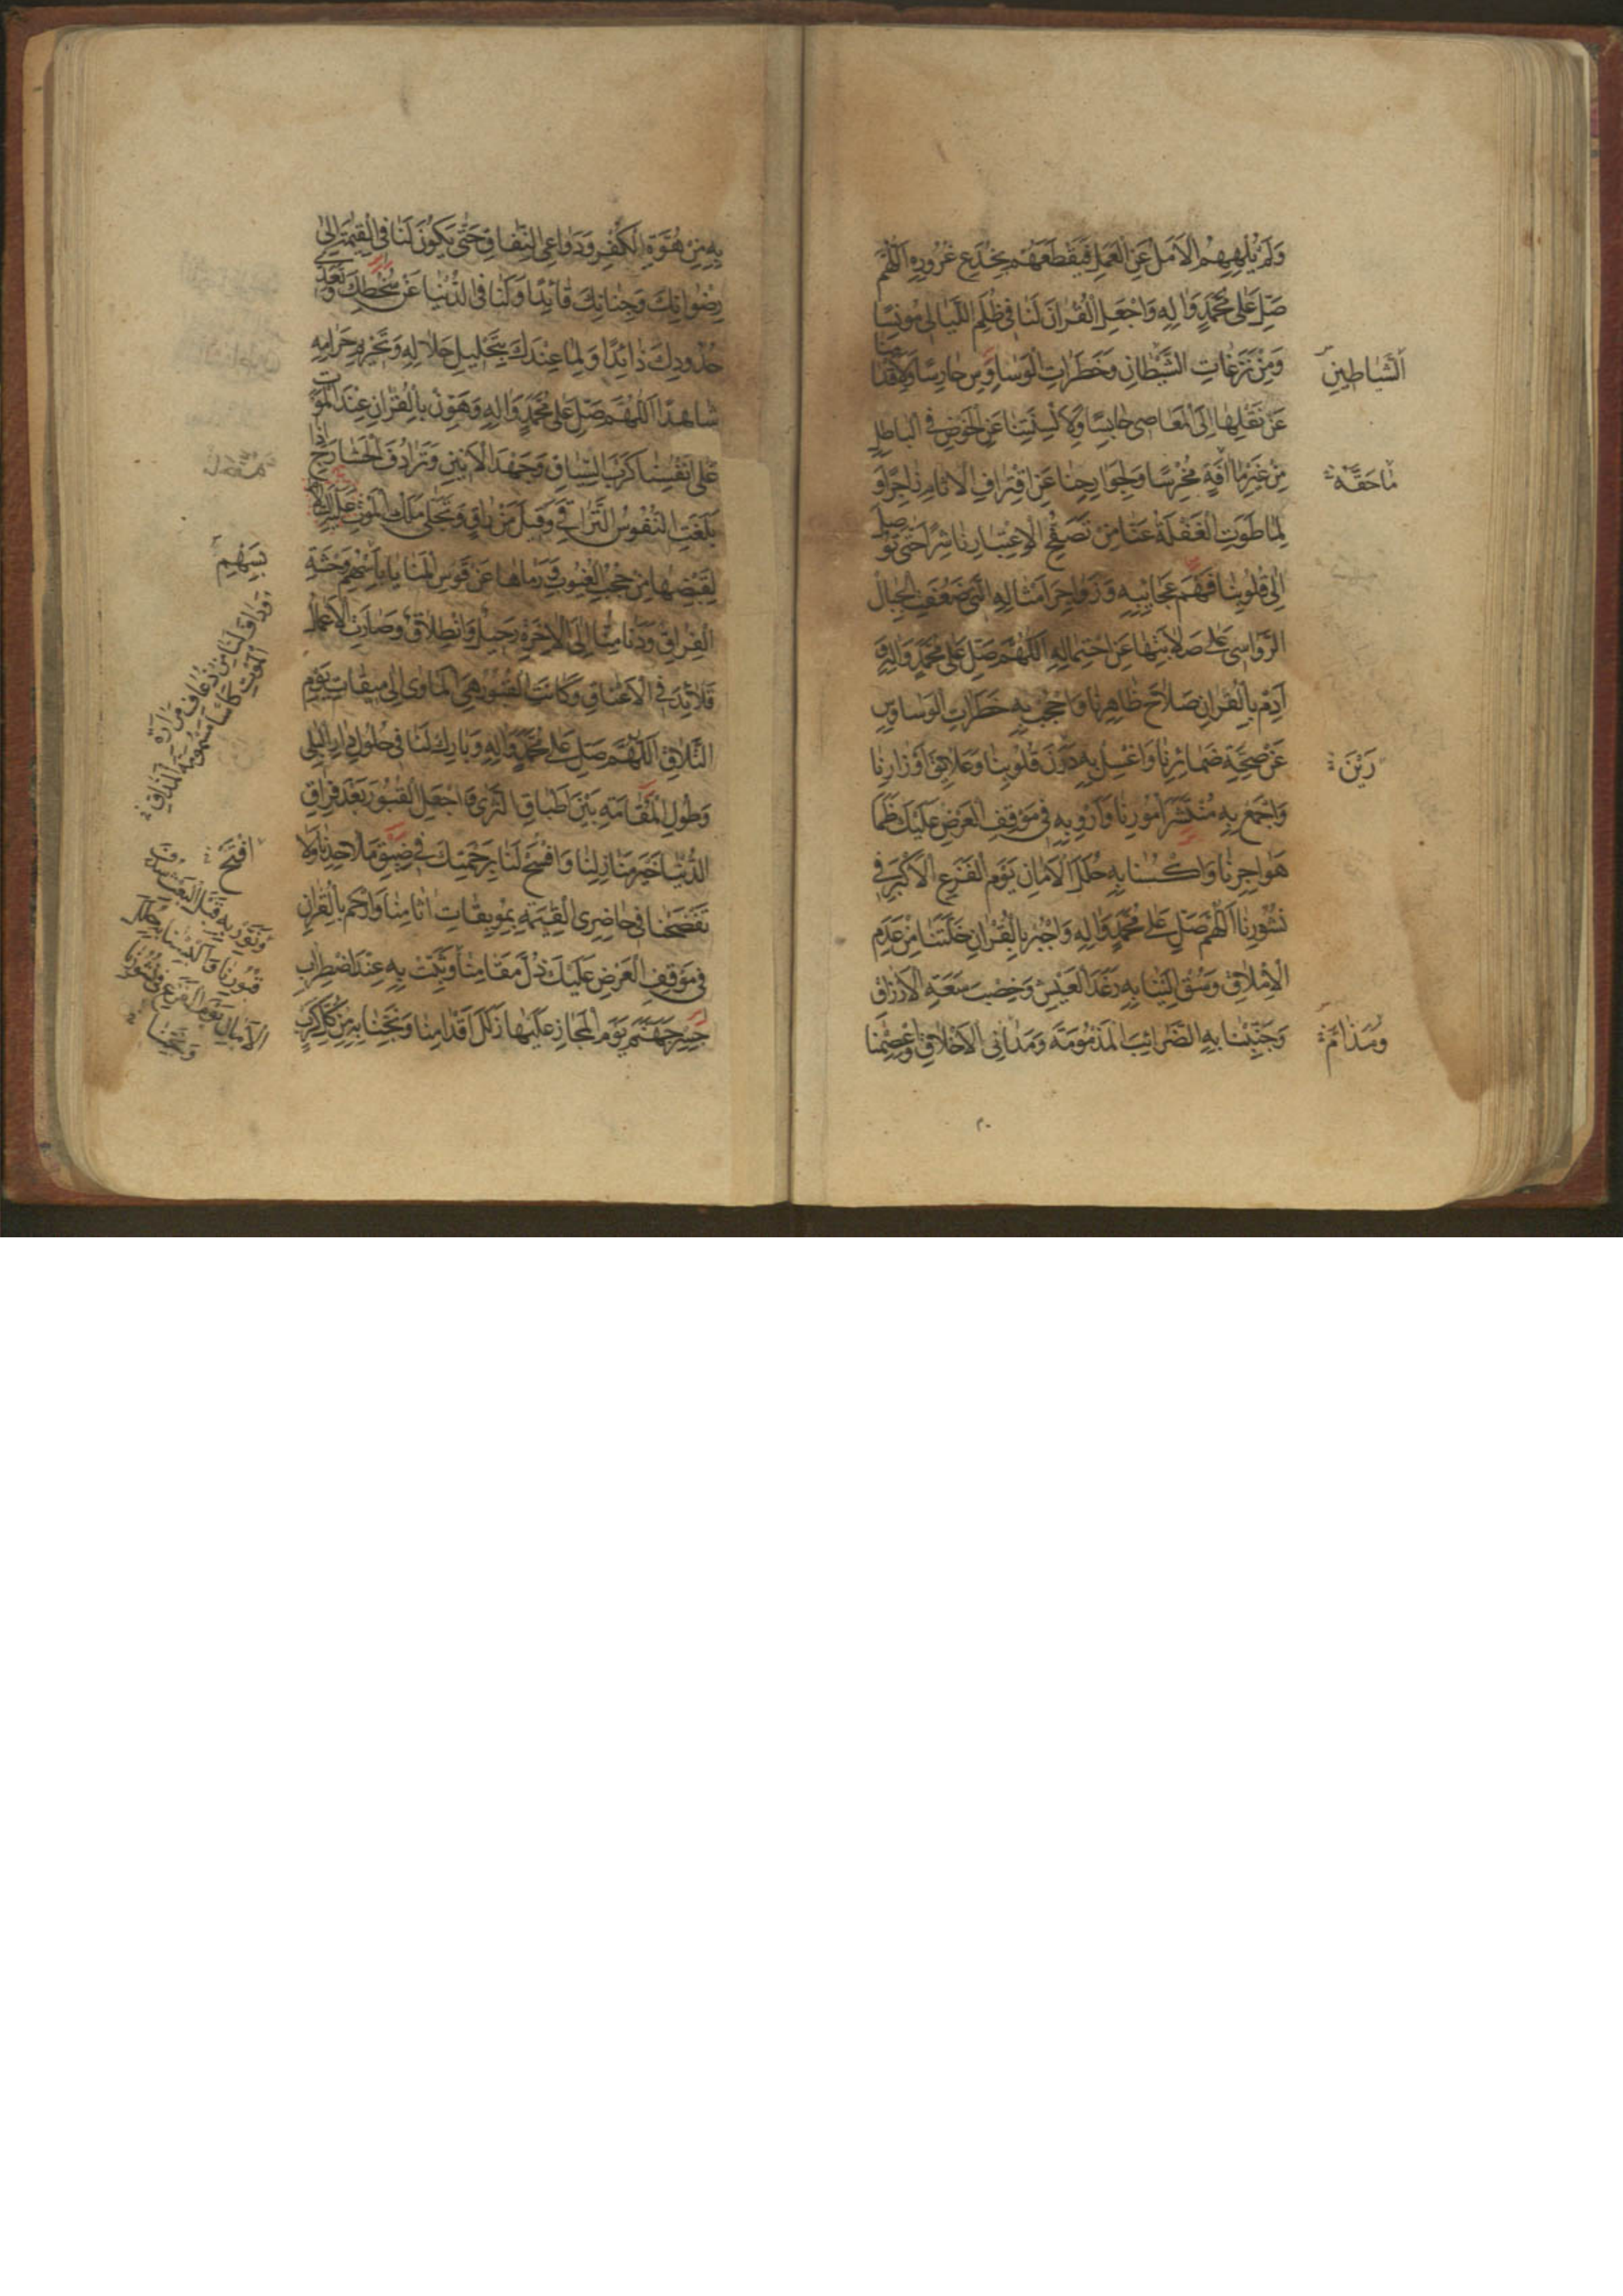 وَلَمْ يُلْهِهِمُ الْاَمَلُ عَنِ الْعَمَلِ فَيَقْطَعَهُمْ بِخُدَعِ غُرُورِهِ اَللّٰهُمَّ
صَلِّ عَلٰى مُحَمَّدٍ وَاٰلِهِ وَاجْعَلِ الْقُرْاٰنَ لَنَا فِى ظُلَمِ اللَّيَالِى مُونِسًا
وَمِنْ نَزَغَاتِ الشَّيْطَانِ وَخَطَرَاتِ الْوَسَاوِسِ حَارِسًا وَلِاَقْدَامِنَا
اَلشَّيَاطِينِ
عَنْ نَقْلِهَا اِلَى الْمَعَاصِى حَابِسًا وَلِاَلْسِنَتِنَا عَنِ الْخَوْضِ فِى الْبَاطِلِ
مِنْ غَيْرِ مَا اٰفَةٍ مُخْرِسًا وَلِجَوَارِحِنَا عَنِ اقْتِرَافِ الْاٰثَامِ زَاجِرًا وَ
لِمَا طَوَتِ الْغَفْلَةُ عَنَّا مِنْ تَصَفُّحِ الْاِعْتِبَارِ نَاشِرًا حَتّٰى تُوصِلَ
اِلٰى قُلُوبِنَا فَهْمَ عَجَائِبِهِ وَزَوَاجِرَ اَمْثَالِهِ الَّتِى ضَعُفَتِ الْجِبَالُ
الرَّوَاسِى عَلٰى صَلَابَتِهَا عَنِ احْتِمَالِهِ اَللّٰهُمَّ صَلِّ عَلٰى مُحَمَّدٍ وَاٰلِهِ وَ
اَدِمْ بِالْقُرْاٰنِ صَلَاحَ ظَاهِرِنَا وَاحْجُبْ بِهِ خَطَرَاتِ الْوَسَاوِسِ
عَنْ صِحَّةِ ضَمَائِرِنَا وَاغْسِلْ بِهِ دَرَنَ قُلُوبِنَا وَعَلَائِقَ اَوْزَارِنَا
رَيْنَ
وَاجْمَعْ بِهِ مُنْتَشِرَ اُمُورِنَا وَاَرْوِ بِهِ فِى مَوْقِفِ الْعَرْضِ عَلَيْكَ ظَمَأَ
هَوَاجِرِنَا وَاكْسُنَا بِهِ حُلَلَ الْاَمَانِ يَوْمَ الْفَزَعِ الْاَكْبَرِ فِى
نُشُورِنَا اَللّٰهُمَّ صَلِّ عَلٰى مُحَمَّدٍ وَاٰلِهِ وَاجْبُرْ بِالْقُرْاٰنِ خَلَّتَنَا مِنْ عَدَمِ
الْاِمْلَاقِ وَسُقْ اِلَيْنَا بِهِ رَغَدَ الْعَيْشِ وَخِصْبَ سَعَةِ الْاَرْزَاقِ
وَجَنِّبْنَا بِهِ الضَّرَائِبَ الْمَذْمُومَةَ وَمَدَانِىَ الْاَخْلَاقِ وَاعْصِمْنَا
بِهِ مِنْ هُوَّةِ الْكُفْرِ وَدَوَاعِى النِّفَاقِ حَتّٰى يَكُونَ لَنَا فِى الْقِيٰمَةِ اِلٰى
رِضْوَانِكَ وَجِنَانِكَ قَائِدًا وَلَنَا فِى الدُّنْيَا عَنْ سُخْطِكَ وَتَعَدِّى
حُدُودِكَ ذَائِدًا وَلِمَا عِنْدَكَ بِتَحْلِيلِ حَلَالِهِ وَتَحْرِيمِ حَرَامِهِ
شَاهِدًا اَللّٰهُمَّ صَلِّ عَلٰى مُحَمَّدٍ وَاٰلِهِ وَهَوِّنْ بِالْقُرْاٰنِ عِنْدَ الْمَوْتِ
عَلٰى اَنْفُسِنَا كَرْبَ السِّيَاقِ وَجَهْدَ الْاَنِينِ وَتَرَادُفَ الْحَشَارِجِ اِذَا
بَلَغَتِ النُّفُوسُ التَّرَاقِىَ وَقِيلَ مَنْ رَاقٍ وَتَجَلّٰى مَلَكُ الْمَوْتِ
لِقَبْضِهَا مِنْ حُجُبِ الْغُيُوبِ وَرَمَاهَا عَنْ قَوْسِ الْمَنَايَا بِاَسْهُمِ وَحْشَةِ
بِسَهْمِ
الْفِرَاقِ وَدَنَا مِنَّا اِلَى الْاٰخِرَةِ رَحِيلٌ وَانْطِلَاقٌ وَصَارَتِ الْاَعْمَالُ
وَدَافَ لَنَا مِنْ ذُعَافِ مَرَارَةِ
الْمَوْتِ كَاْسًا مَسْمُومَةَ الْمَذَاقِ
قَلَائِدَ فِى الْاَعْنَاقِ وَكَانَتِ الْقُبُورُ هِىَ الْمَاْوٰى اِلٰى مِيقَاتِ يَوْمِ
التَّلَاقِ اَللّٰهُمَّ صَلِّ عَلٰى مُحَمَّدٍ وَاٰلِهِ وَبَارِكْ لَنَا فِى حُلُولِ دَارِ الْبِلٰى
وَطُولِ الْمُقَامَةِ بَيْنَ اَطْبَاقِ الثَّرٰى وَاجْعَلِ الْقُبُورَ بَعْدَ فِرَاقِ
الدُّنْيَا خَيْرَ مَنَازِلِنَا وَافْسَحْ لَنَا بِرَحْمَتِكَ فِى ضِيقِ مَلَاحِدِنَا وَلَا
تَفْضَحْنَا فِى حَاضِرِى الْقِيٰمَةِ بِمُوبِقَاتِ اٰثَامِنَا وَارْحَمْ بِالْقُرْاٰنِ
فِى مَوْقِفِ الْعَرْضِ عَلَيْكَ ذُلَّ مَقَامِنَا وَثَبِّتْ بِهِ عِنْدَ اضْطِرَابِ
جِسْرِ جَهَنَّمَ يَوْمَ الْمَجَازِ عَلَيْهَا زَلَلَ اَقْدَامِنَا وَنَجِّنَا بِهِ مِنْ كُلِّ كَرْبٍ
وَنَوِّرْ بِهِ قَبْلَ الْبَعْثِ